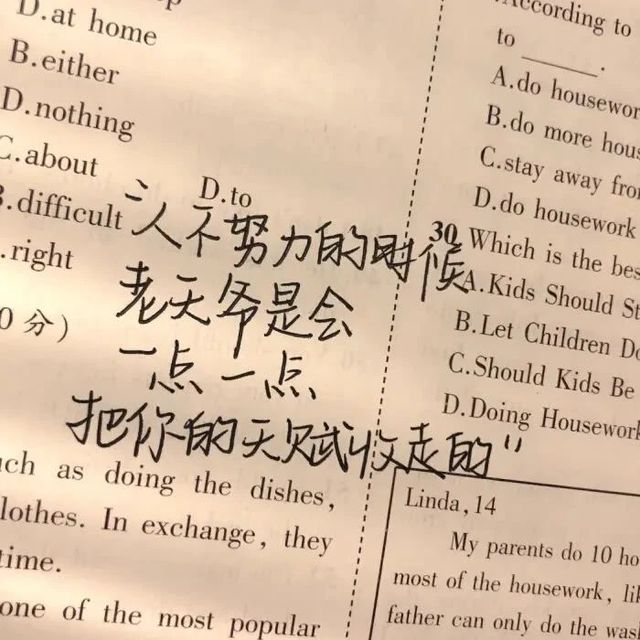 D.at home
B.either
D.nothing
C.about
D.to
B.difficult
.right
0 分）
"人不努力的时候
老天爷是会
一点一点
把你的天赋收走的"
ch as doing the dishes,
lothes. In exchange, they
time.
one of the most popular
According to
to ______.
A.do housewor
B.do more hous
C.stay away fro
D.do housework
30 Which is the bes
A.Kids Should St
B.Let Children Do
C.Should Kids Be
D.Doing Housework
Linda,14
My parents do 10 ho
most of the housework, lik
father can only do the was